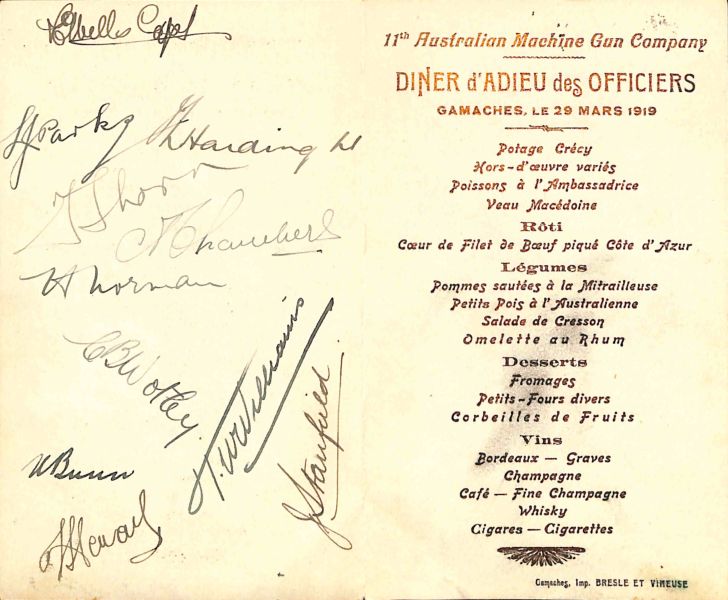 Capt
Harding Lt
Chambers
H Norman
C B Wotley
J Stanfield
W Bunn
11th Australian Machine Gun Company
DINER d'ADIEU des OFFICIERS
GAMACHES, LE 29 MARS 1919
Potage Crécy
Hors-d'œuvre variés
Poissons à l'Ambassadrice
Veau Macédoine
Rôti
Cœur de Filet de Bœuf piqué Côte d'Azur
Légumes
Pommes sautées à la Mitrailleuse
Petits Pois à l'Australienne
Salade de Cresson
Omelette au Rhum
Desserts
Fromages
Petits-Fours divers
Corbeilles de Fruits
Vins
Bordeaux — Graves
Champagne
Café — Fine Champagne
Whisky
Cigares — Cigarettes
Gamaches, Imp. BRESLE ET VIMEUSE